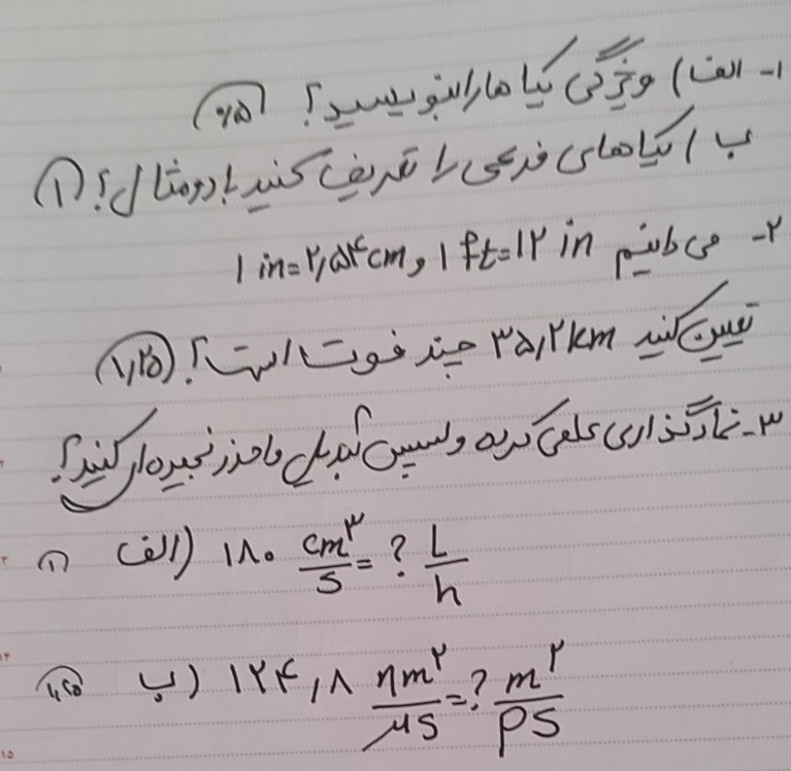 ۱- الف) ویژگی یکا ها را بنویسید؟ (۰/۵)
ب) یکاهای فرعی را تعریف کنید با دو مثال؟ (۱)
۲- می دانیم 1 ft = ۱۲ in و 1 in = ۲,۵۴ cm
تعیین کنید ۳۵,۲ km چند فوت است؟ (۱,۲۵)
۳- نماد گذاری علمی کرده و سپس تبدیل واحد زنجیره ای کنید؟
الف) ۱۸۰ cm³/s = ? L/h (۱)
ب) ۱۲۴,۸ nm²/µs = ? m²/ps